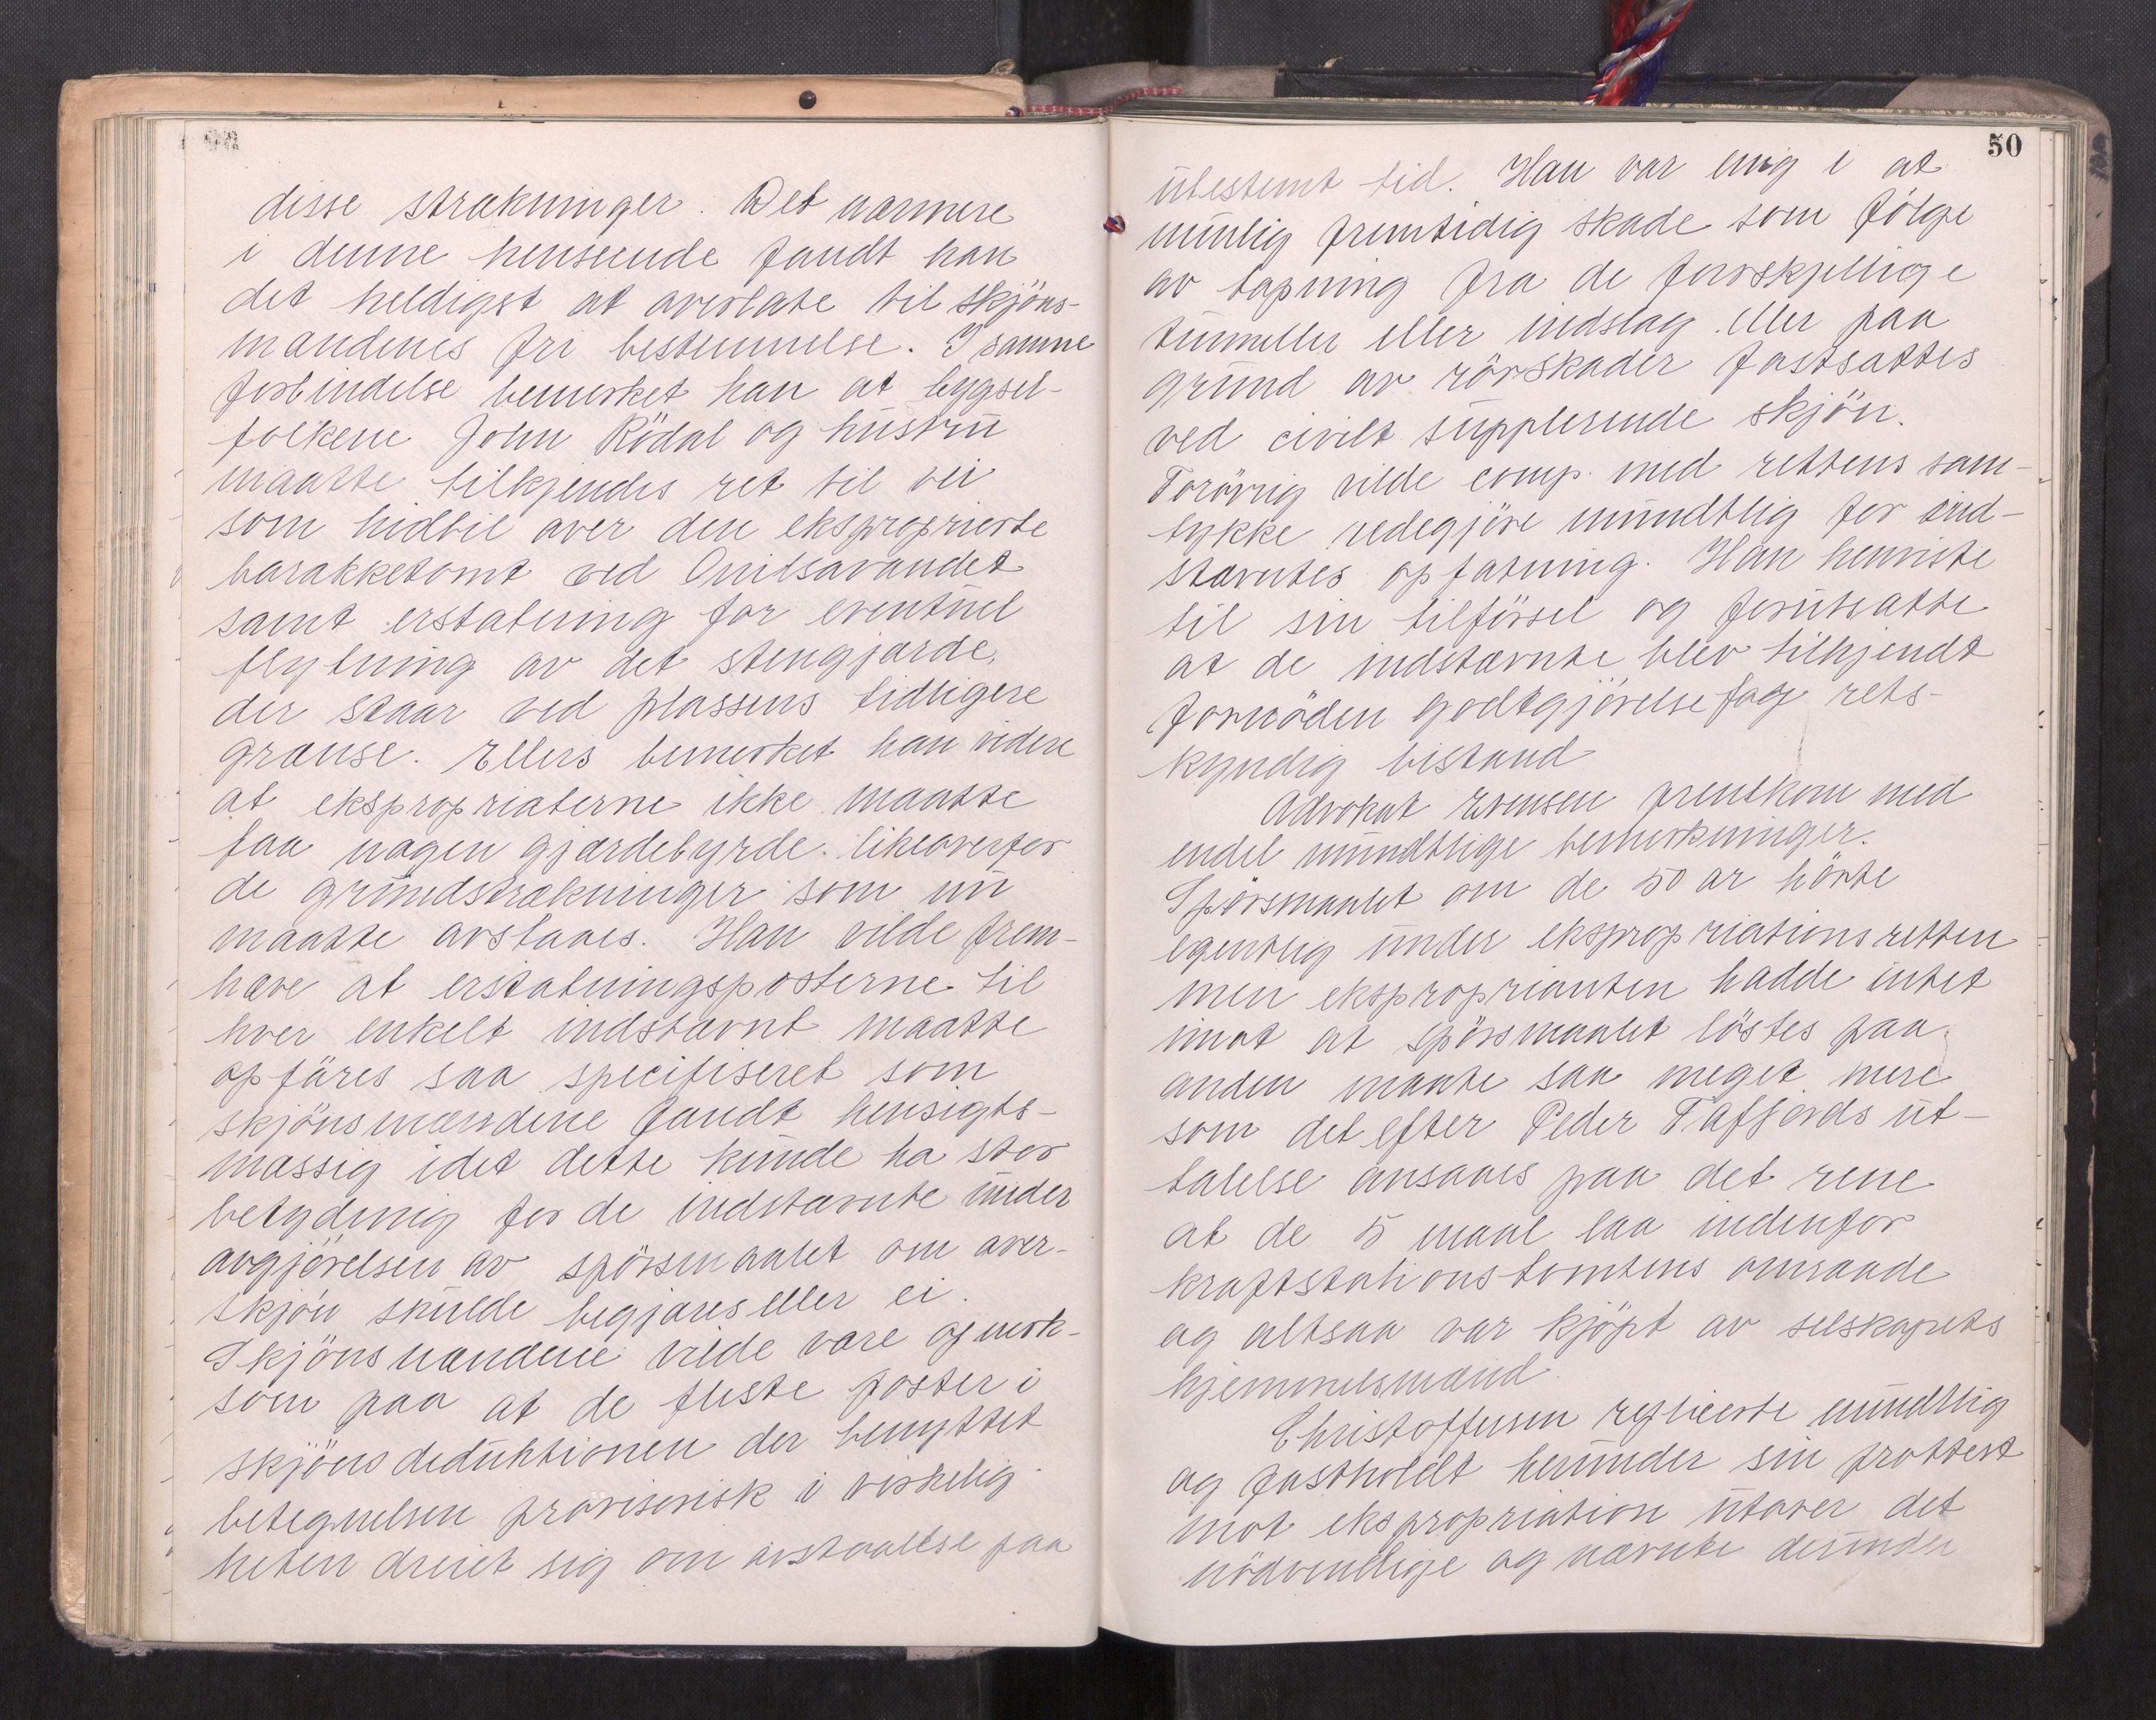 disse strækninger. Det nærmere
i denne henseende fandt han
det heldigst at overlate til skjöns-
mændenes fri bestemmelse. I samme
forbindelse bemerket han at bygsel-
folkene John Rödal og hustru
maatte tilkjendes ret til vei
som hidtil over den eksproprierte
barakketomt ved Onilsavandet
samt erstatning for eventuel
flytning av det stengjærde,
der staar ved plassens tidligere
grænse. Ellers bemerket han videre
at ekspropriaterne ikke maatte
faa nogen gjærdebyrde likeoverfor
de grundstrækninger som nu
maatte avstaaes. Han vilde frem-
hæve at erstatningsposterne til
hver enkelt indstævnt maatte
opföres saa specifiseret som
skjönsmændene fandt hensigts-
mæssig idet dette kunde ha stor
betydning for de indstævnte under
avgjörelsen av spörsmaalet om over-
skjön skulde begjæres eller ei.
Skjönsmændene vilde være opmerk-
som paa at de fleste poster i
skjönsdeduktionen der benyttet
betegnelsen provisorisk i virkelig-
heten dreiet sig om avstaaelse paa
50
ubestemt tid. Han var enig i at
mulig fremtidig skade som fölge
av tapning fra de forskjellige
tunneller eller indslag eller paa
grund av rörskader fastsættes
ved civilt supplerende skjön.
Forövrig vilde comp. med rettens sam-
tykke redegjöre mundtlig for ind-
stævntes opfatning. Han henviste
til sin tilförsel og forutsatte
at de indstævnte blev tilkjendt
fornöden godtgjörelse f og rets-
kyndig bistand
Advokat Evensen fremkom med
endel mundtlige bemerkninger.
Spörsmaalet om de 50 ar hörte
egentlig under ekspropriationsretten
men eksproprianten hadde intet
imot at spörsmaalet löstes paa
anden maate saa meget mere
som det efter Peder Tafjords ut-
talelse ansaaes paa det rene
at de 5 maal laa indenfor
kraftstationstomtens omraade
og altsaa var kjöpt av selskapets
hjemmelsmand.
Christoffersen replicerte mundtlig
og fastholdt herunder sin prottest
mot ekspropriation utover det
nödvendige og nævnte derunder